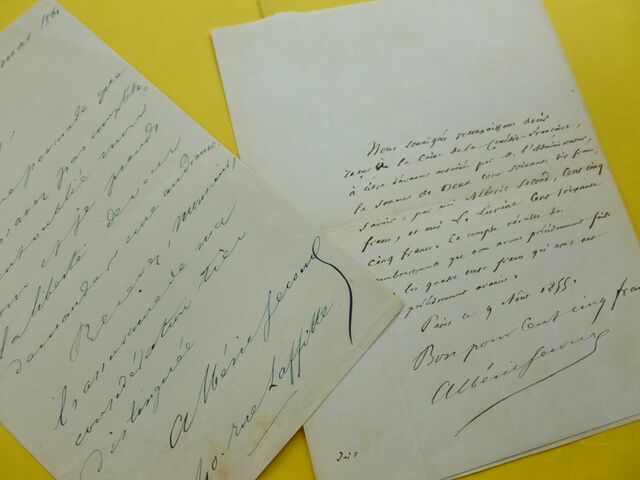 mars 186
persuade que
pas complète-
oublié mon
nom et je prends
la liberté de vous
demander une audience.
Recevez, Monsieur,
l'assurance de ma
considération très
distinguée
Albéric Second
rue Laffitte
Nous soussignés reconnaissons avoir
reçu de la Caisse de la Comédie-Française,
à titre d'avance autorisé par M. l'Administrateur,
la somme de Deux cent soixante dix francs,
Savoir, par moi Albéric Second, Cent cinq
francs, et moi Cent soixante
cinq francs. Ce compte résulte du
remboursement que nous avons précédemment fait
les quatre cents francs qui nous ont
précédemment avancés.
Paris ce 9 Août 1855.
Bon pour Cent cinq francs
Albéric Second